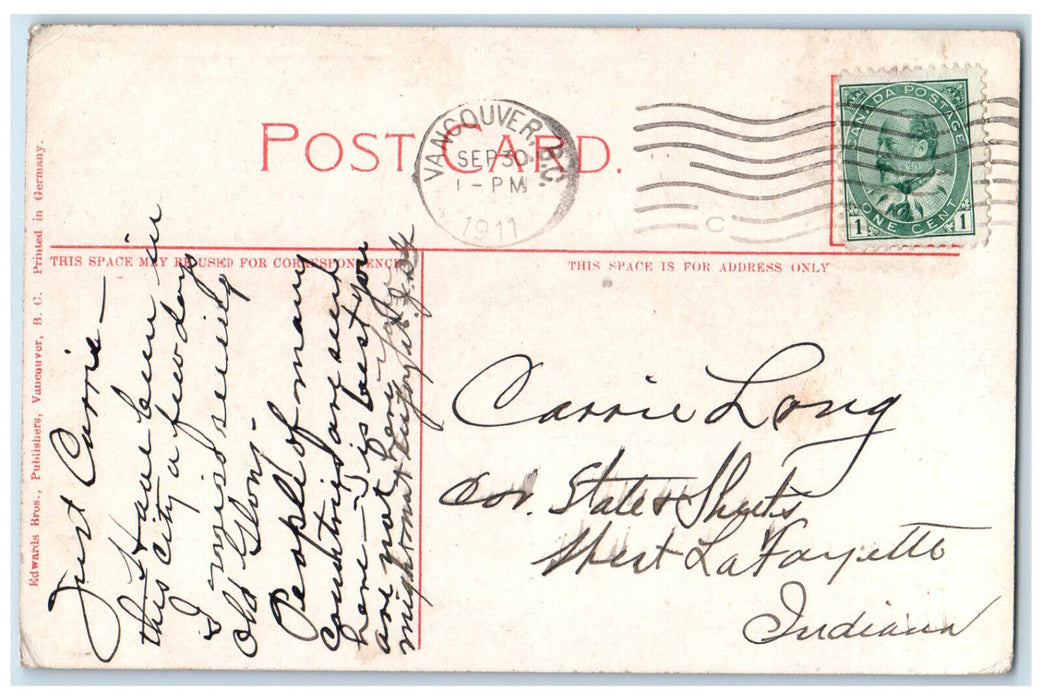 POST CARD.
VANCOUVER, B.C.
SEP 30
1-PM
1911
CANADA POSTAGE
1 ONE CENT 1
THIS SPACE MAY BE USED FOR CORRESPONDENCE
THIS SPACE IS FOR ADDRESS ONLY
Edwards Bros., Publishers, Vancouver, B. C. Printed in Germany.
Just Carrie—
Have been in
this city a few days
I miss seeing
Old Glory.
People of many
countries are seen
here— is best you
are not here for you
might
Carrie Long
Cor. State & Sheets
West LaFayette
Indiana